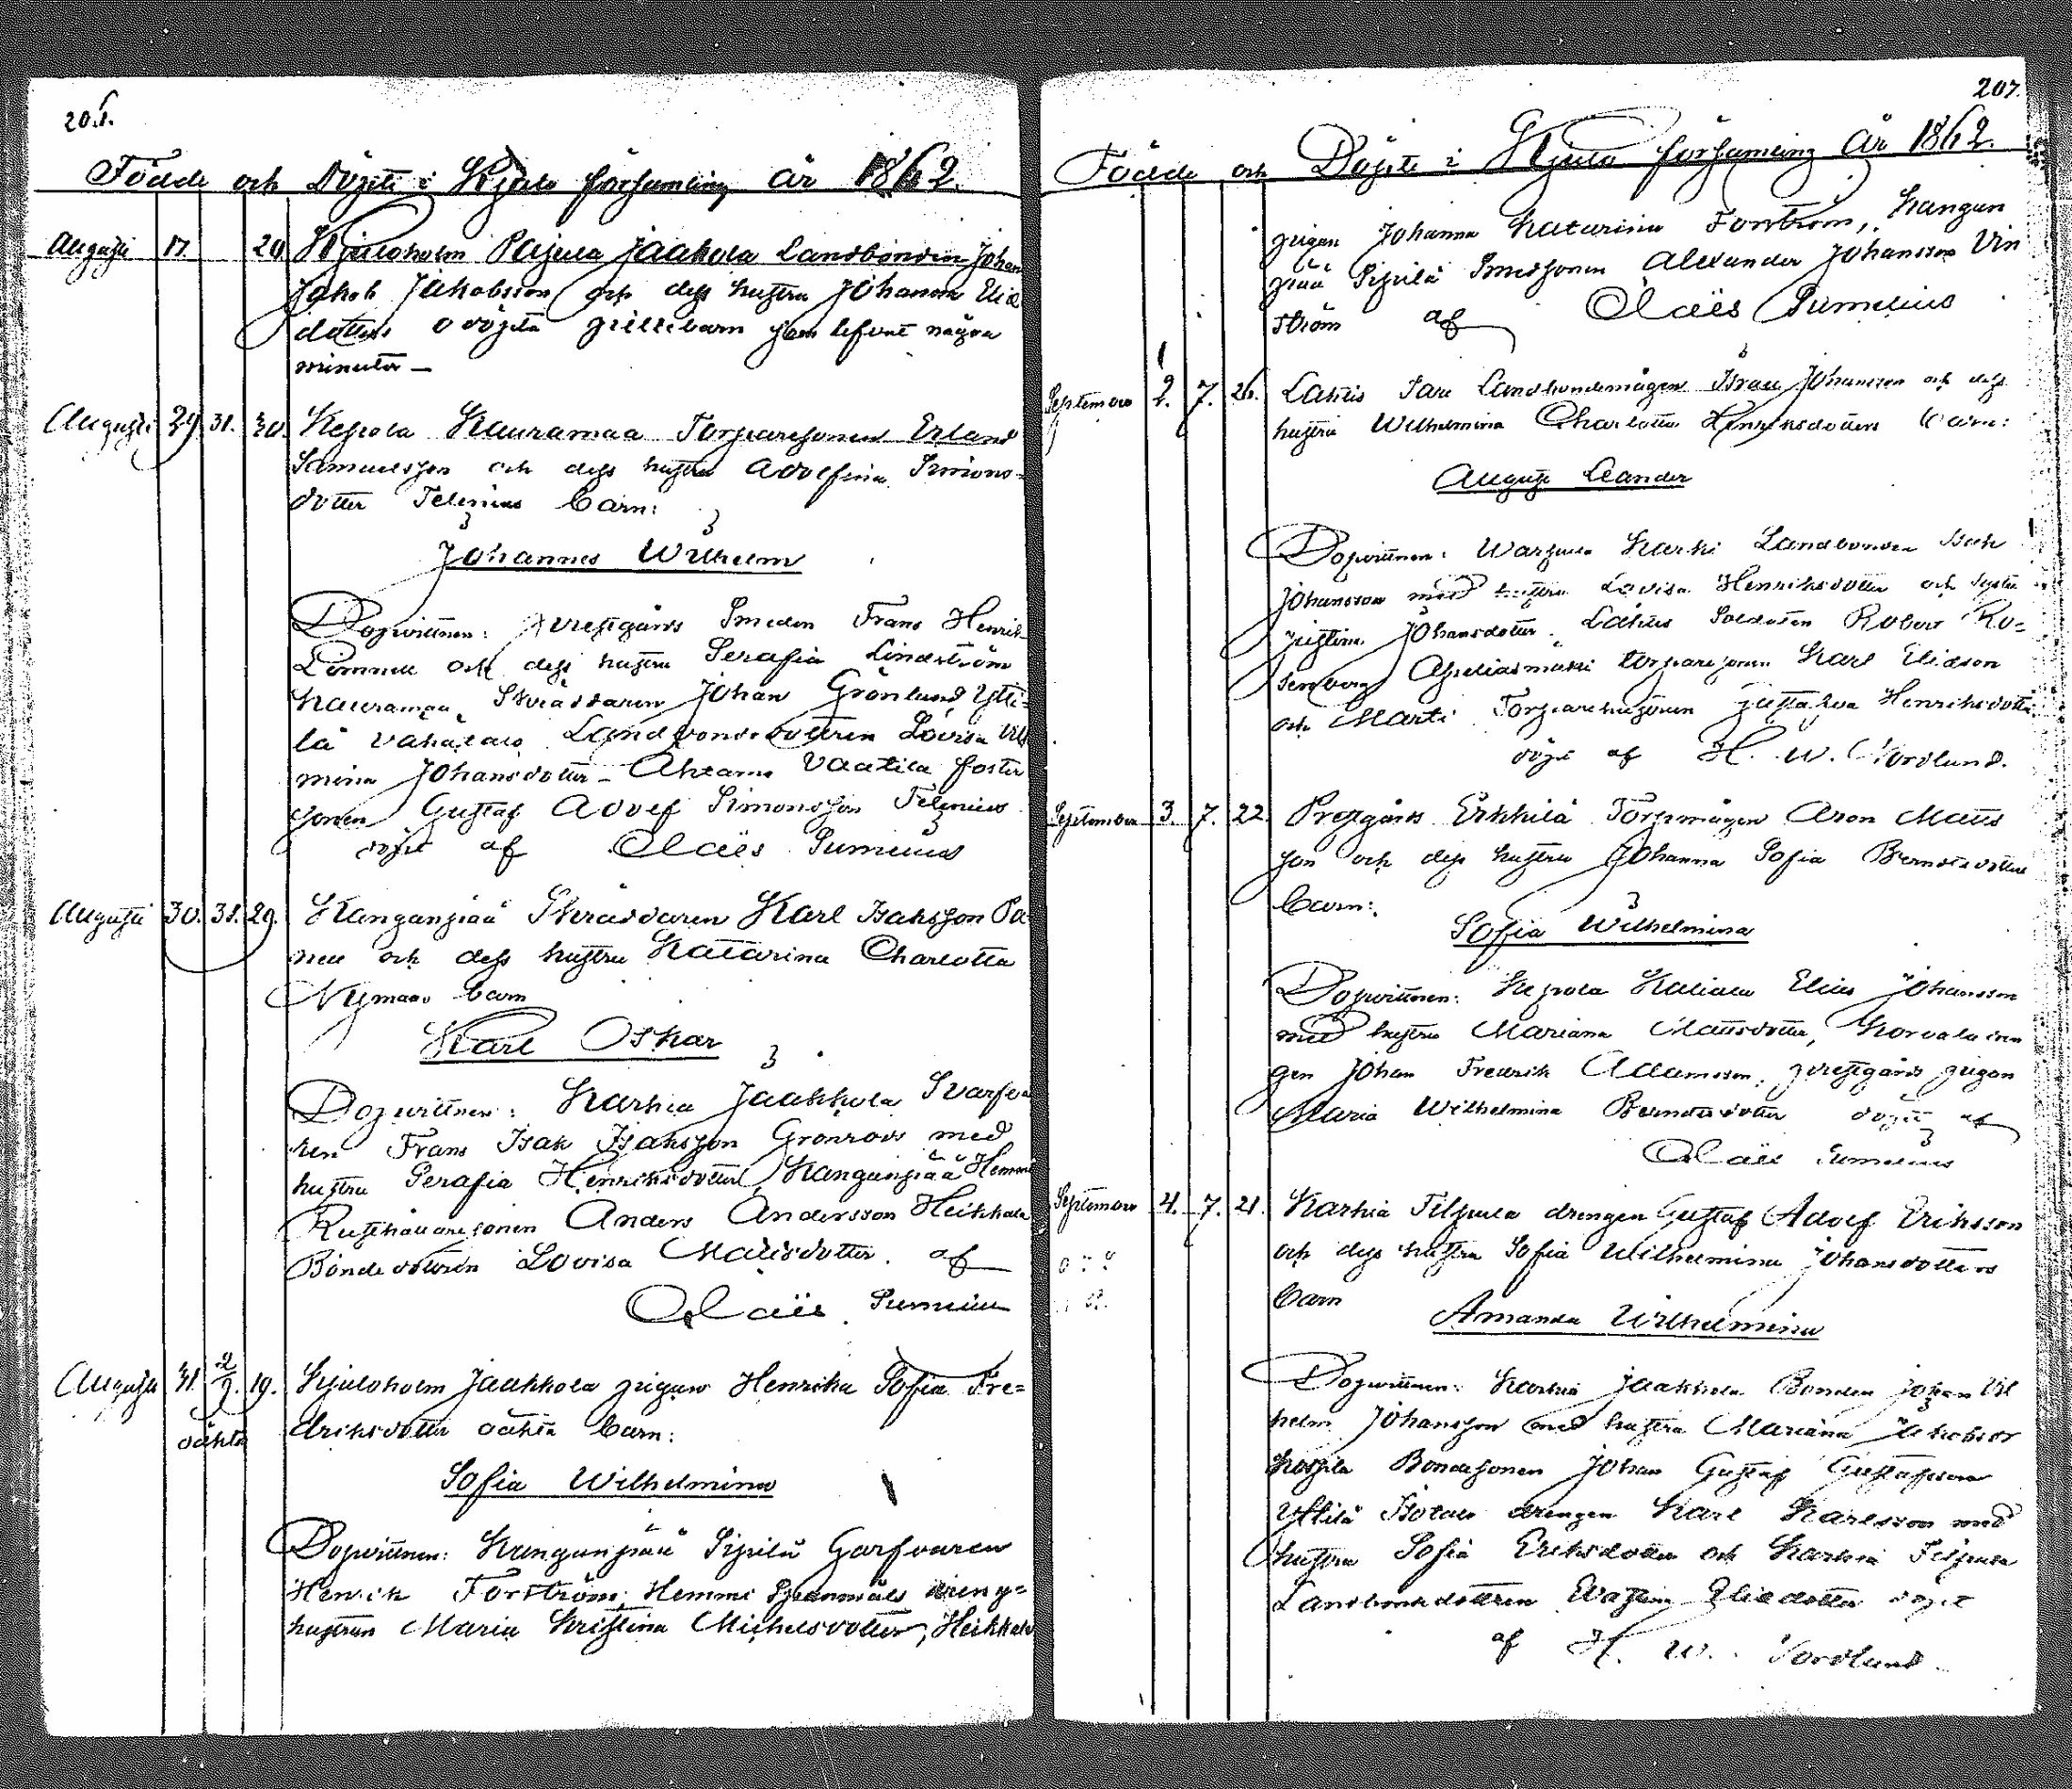 206.
Födde och Döpte i Kjulo församling år 1862.
Augusti 17. 20 Kjuloholm Pajula Jaakola Landbonden Johan
Jakob Jakobsson och dess hustru Johanna Elia
dotters odöpta gillebarn som lefvat några
minuter —
Augusti 29. 31. 30. Kepola Kauramaa Torparesonen Erland
Samuelsson och dess hustru Adolfina Simons-
dotter Telenius barn:
Johannes Wilhelm
Dopvittnen: Prestgårds Smeden Frans Henrik
och dess hustru Serafia Lindström
Kauramaa Skräddaren Johan Grönlund, Ytti-
lä Vahalaló Landbondedottren Lovisa Vil
mina Johansdotter – Ahrama Vaatila foster
sonen Gustaf Adolf Simonsson Telenius
döpt af Claës Sumelius
Augusti 30. 31. 29. Kanganpää Skräddaren Karl Isaksson Pa
nell och dess hustru Katarina Charlotta
Nyman barn
Karl Oskar
Dopvittnen: Karhia Jaakkola Svarfva
ren Frans Isak Isaksson Grönroos med
hustru Serafia Henriksdotter, Kanganpää Hemmi
Rusthållaresonen Anders Andersson Heikkala
Bondedottren Lovisa Mattsdotter. af
Claës Sumelius
Augusti 31. 2/9. 19. Kjuloholm Jaakkola pigan Henrika Sofia Fre-
driksdotter oäkta barn:
oäkta
Sofia Wilhelmina
Dopvittnen: Kanganpää Sipilä Garfvaren
Henrik Forström, Hemmi dreng-
hustrun Maria Kristina Michelsdotter, Heikkala
207.
Födde och Döpte i Kjulo församling År 1862.
pigan Johanna Katarina Forström, Kangan
pää Sipilä Smedsonen Alexander Johansson Vin
ström af Claës Sumelius
September 2. 7. 26. Lähtis Saru Landbondemågen Israel Johansson och dess
hustru Wilhelmina Charlotta Henriksdotters barn:
August Leander
Dopvittnen: Warpula Karhi Landbonden Isak
Johansson med hustru Lovisa Henriksdotter och syster
Justina Johansdotter. Lähtis Soldaten Robert Ro-
senberg torparesonen Karl Eliasson
och Marti Torparehustrun Gustafva Henriksdotter
döpt af H. W. Nordlund.
September 3. 7. 22. Prestgårds Erkkilä Torpmågen Aron Matts
son och dess hustru Johanna Sofia Berndtsdotters
barn:
Sofia Wilhelmina
Dopvittnen: Kepola Kaliala Elias Johansson
med hustru Mariana Mattsdotter, Korvala dren
gen Johan Fredrik Adamsson, prestgårds pigan
Maria Wilhelmina Berndtsdotter döpte af
Claës Sumelius
September 4. 7. 21. Karhia Filpula drengen Gustaf Adolf Eriksson
och dess hustru Sofia Wilhelmina Johansdotters
barn
Amanda Wilhelmina
Dopvittnen: Karhia Jaakkola Bonden Johan Vil
helm Johansson med hustru Mariana Jakobsdr
Kospila Bondesonen Johan Gustaf Gustafsson
Yttilä Isotalo drengen Karl Karlsson med
hustru Sofia Eriksdotter och Karhia Filpula
Landbondedottren Eliedotter döpt
af H. W. Nordlund